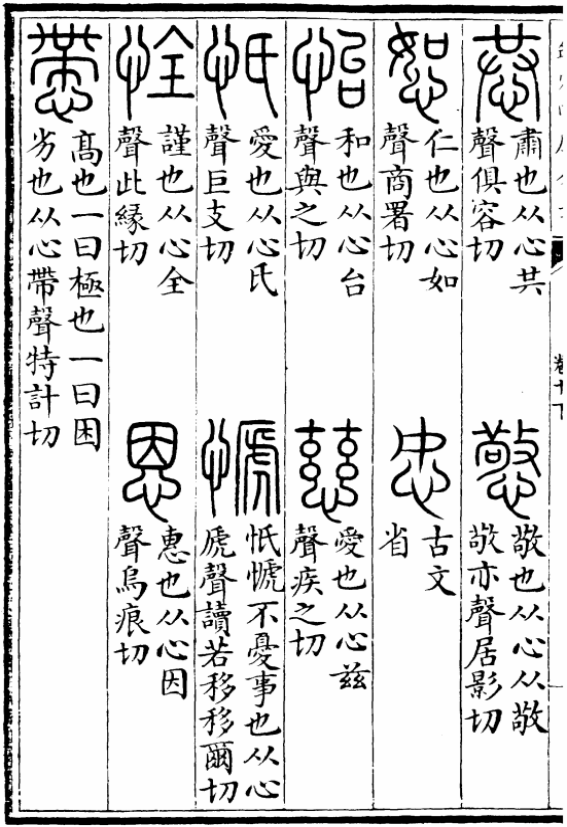 卷十下
恭
肅也从心共
聲俱容切
憼
敬也从心从敬
敬亦聲居影切
恕
仁也从心如
聲商署切
㣽
古文
省
怡
和也从心台
聲與之切
慈
愛也从心兹
聲疾之切
忯
愛也从心氏
聲巨支切
㥴
忯㥴不憂事也从心
虒聲讀若移移爾切
恮
謹也从心全
聲此緣切
恩
惠也从心因
聲烏痕切
㦅
高也一曰極也一曰困
劣也从心帶聲特計切